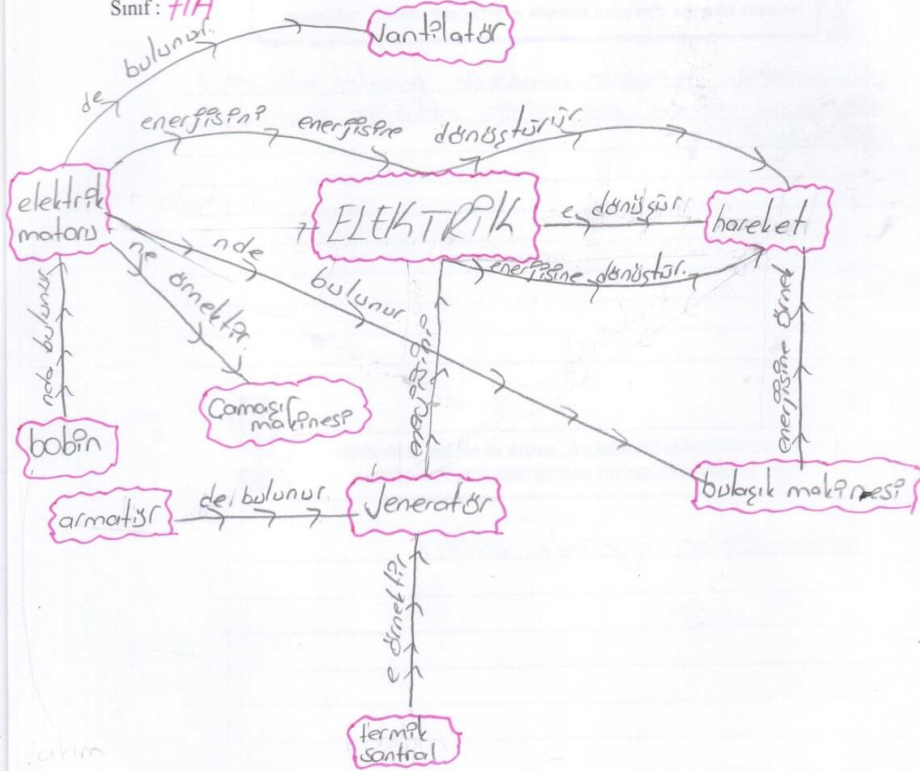 Sınıf : 7/A
vantilatör
de bulunur.
enerjisini enerjisine dönüştürür.
elektrik
motoru
ELEKTRİK
e dönüşür.
hareket
enerjisine dönüştür.
nde
bulunur
ne örnektir.
nde bulunur
enerjisini
enerjisine örnek
Çamaşır
makinesi
bobin
bulaşık makinesi
armatür
de bulunur.
Jeneratör
e örnektir
termik
santral